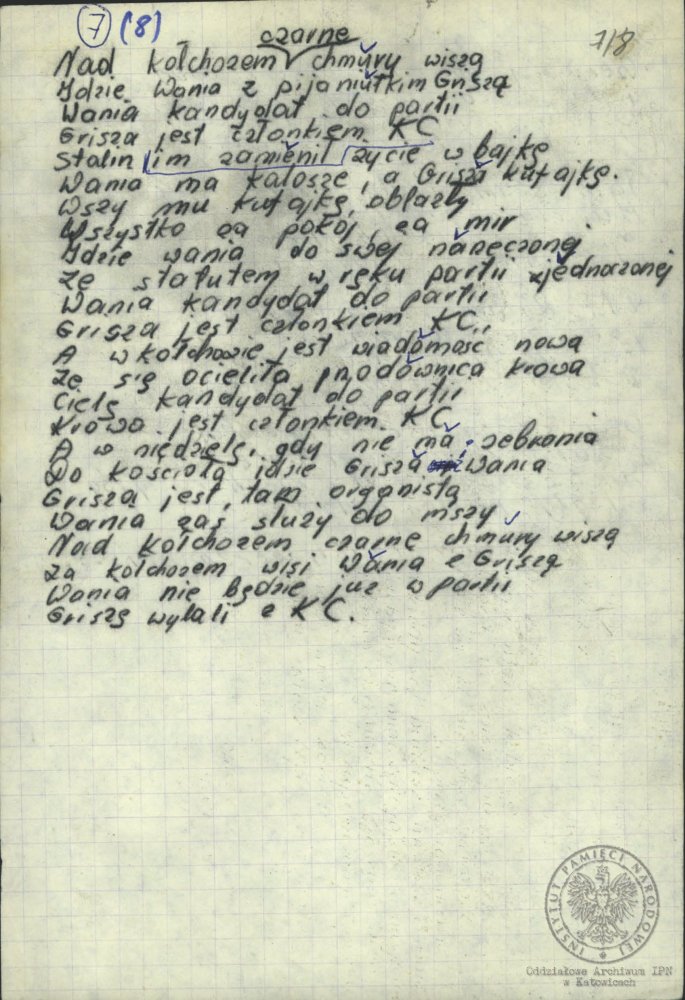 7 (8)
7/8
czarne
Nad kołchozem chmury wiszą
Idzie Wania z pijaniutkim Griszą
Wania kandydat do partii
Grisza jest członkiem KC
Stalin im zamienił życie w bajkę
Wania ma kalosze, a Grisza kufajkę.
Wszy mu kufajkę oblazły
Wszystko za pokój, za mir
Idzie wania do swej narzeczonej
Ze statutem w ręku partii zjednoczonej
Wania kandydat do partii
Grisza jest członkiem KC,,
A w kołchozie jest wiadomość nowa
Że się ocieliła przodownica krowa
Cielę kandydat do partii
Krowa jest członkiem KC
A w niedzielę, gdy nie ma zebrania
Do kościoła idzie Grisza Wania
Grisza jest tam organistą
Wania zaś służy do mszy
Nad kołchozem czarne chmury wiszą
Za kołchozem wisi Wania z Griszą
Wania nie będzie już w partii
Griszę wylali z KC.
INSTYTUT PAMIĘCI NARODOWEJ
Oddziałowe Archiwum IPN
w Katowicach